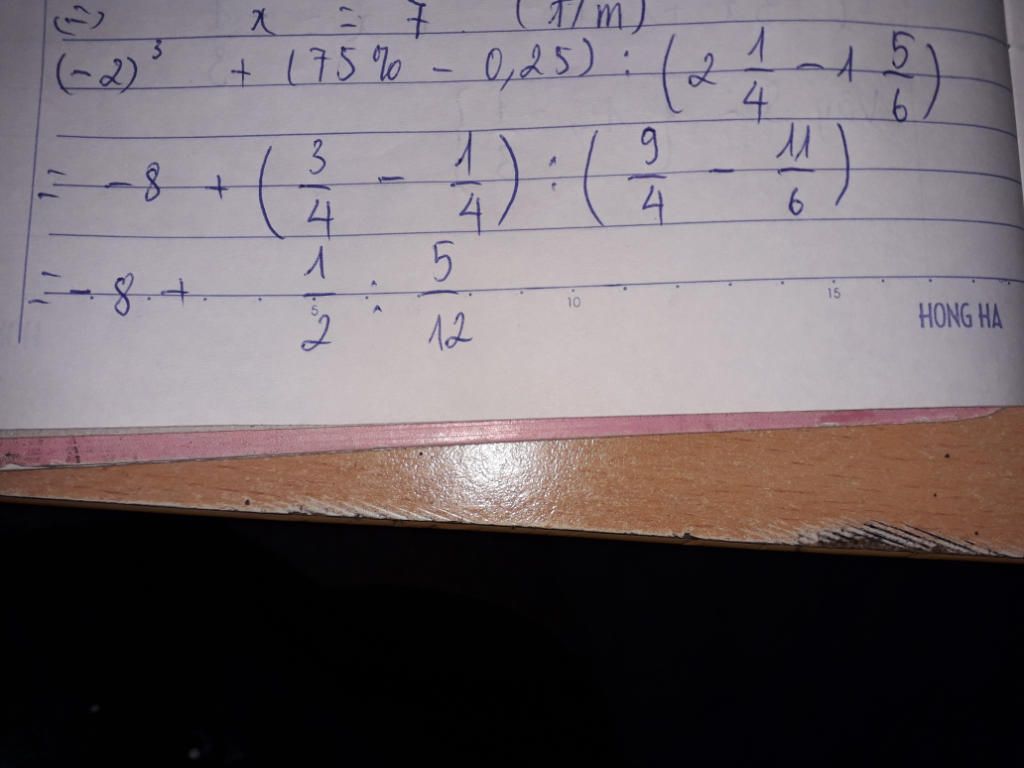 (=) x = 7 (T/m)
(-2)³ + (75% - 0,25) : (2 1/4 - 1 5/6)
= -8 + (3/4 - 1/4) : (9/4 - 11/6)
= -8 + 1/2 : 5/12
5 10 15
HONG HA